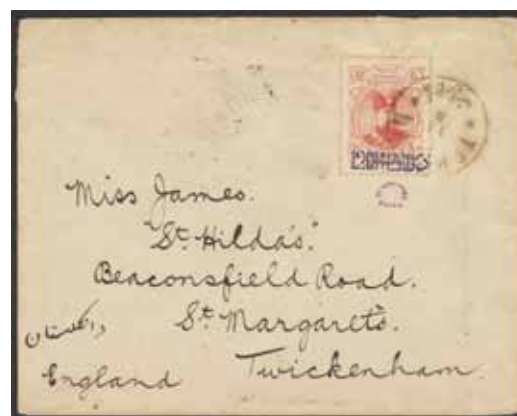 Miss James.
"St. Hilda's."
Beaconsfield Road.
St. Margaret's.
Twickenham
انگلستان
England